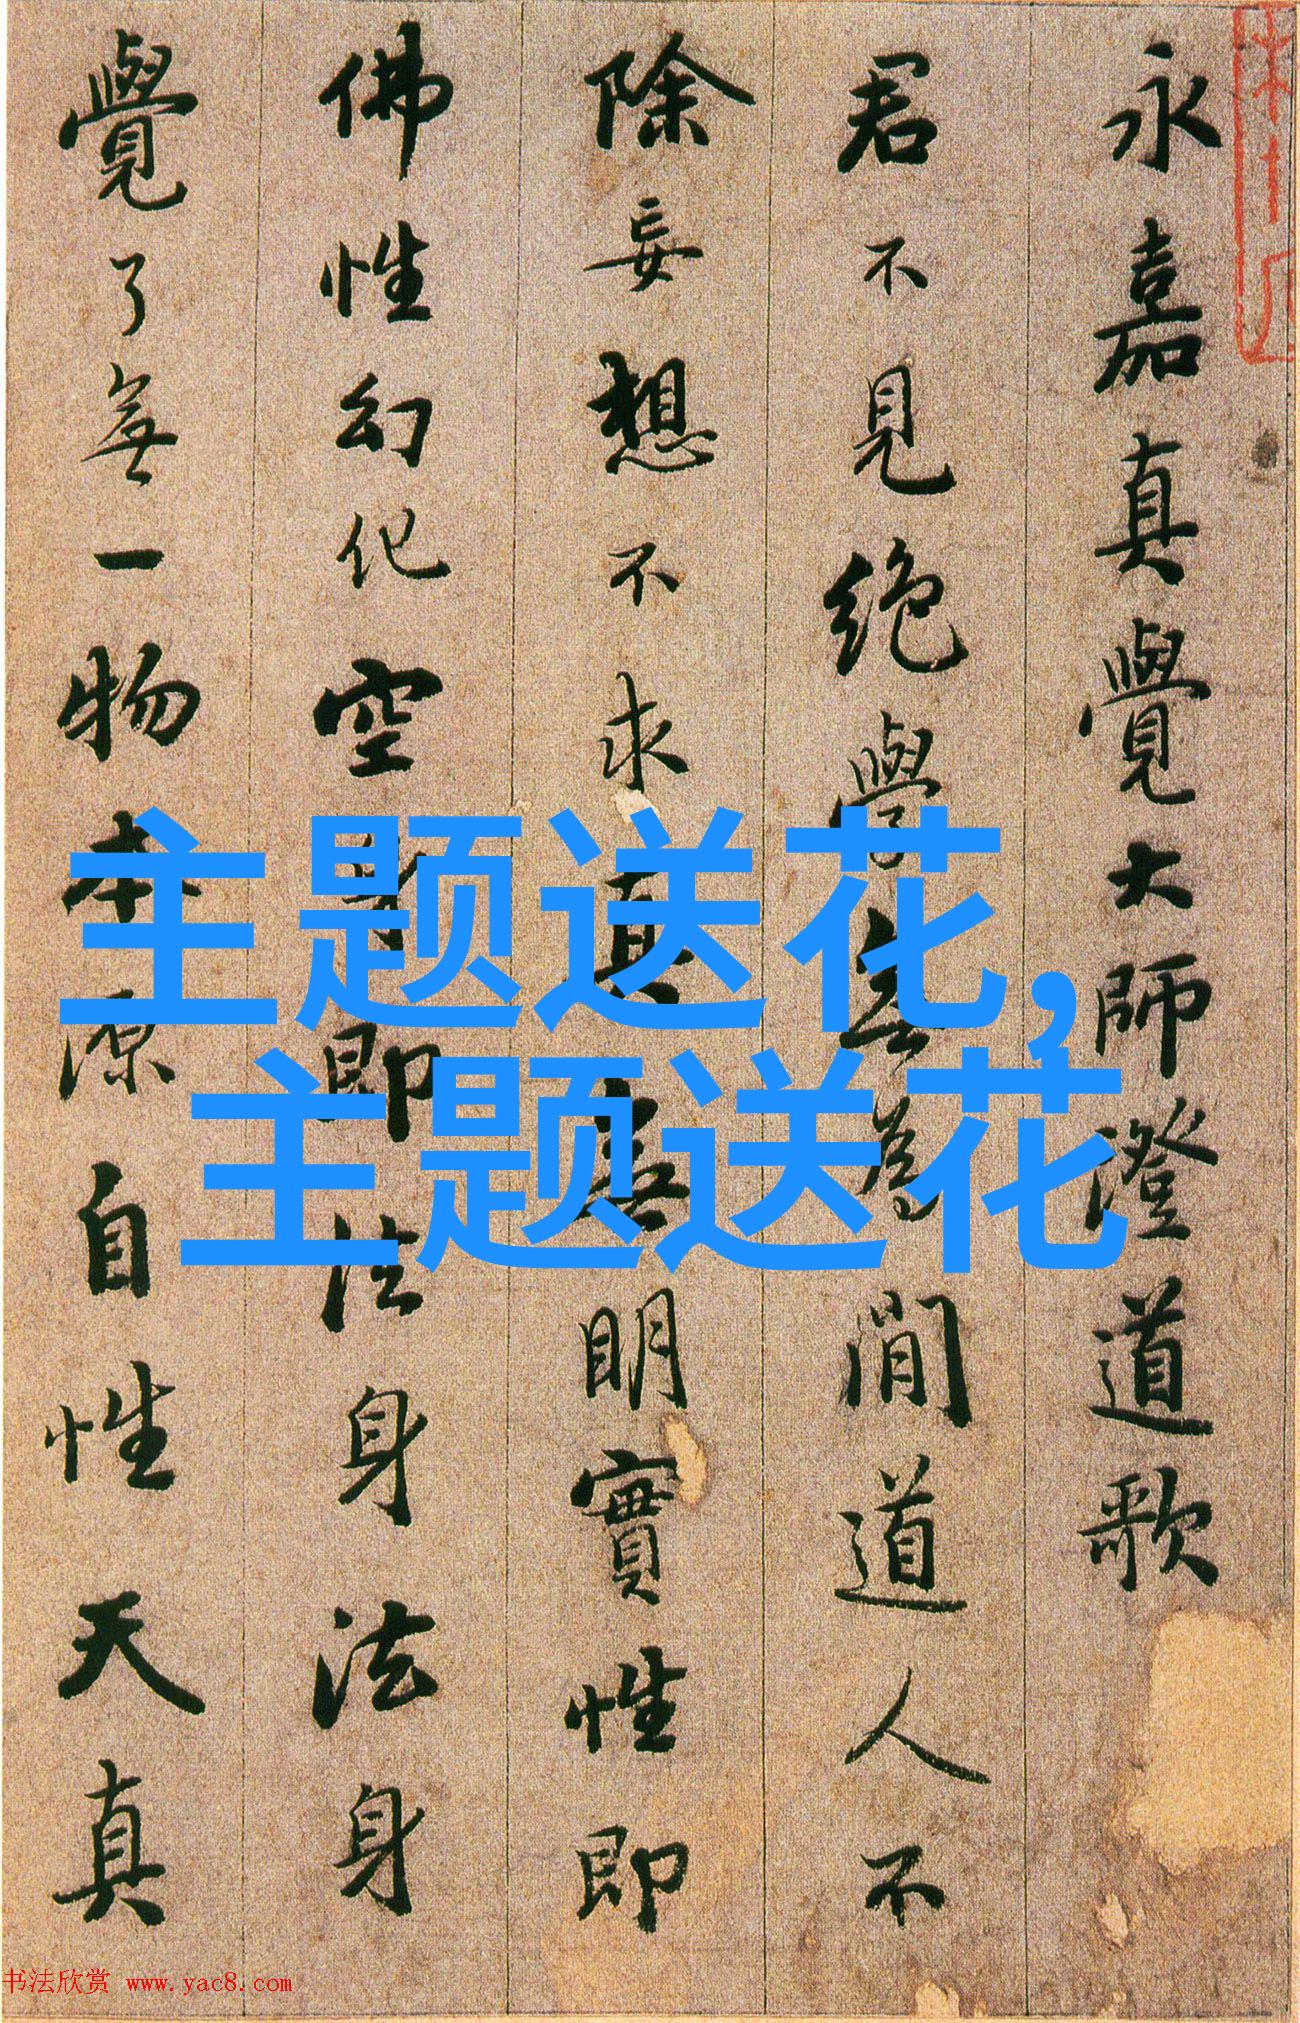 永嘉真覺大師證道歌
君不見絕學無為閒道人不
除妄想不求真無明實性即
佛性幻化空身即法身法身
覺了無一物本源自性天真
主题送花,
主题送花
书法欣赏 www.yac8.com